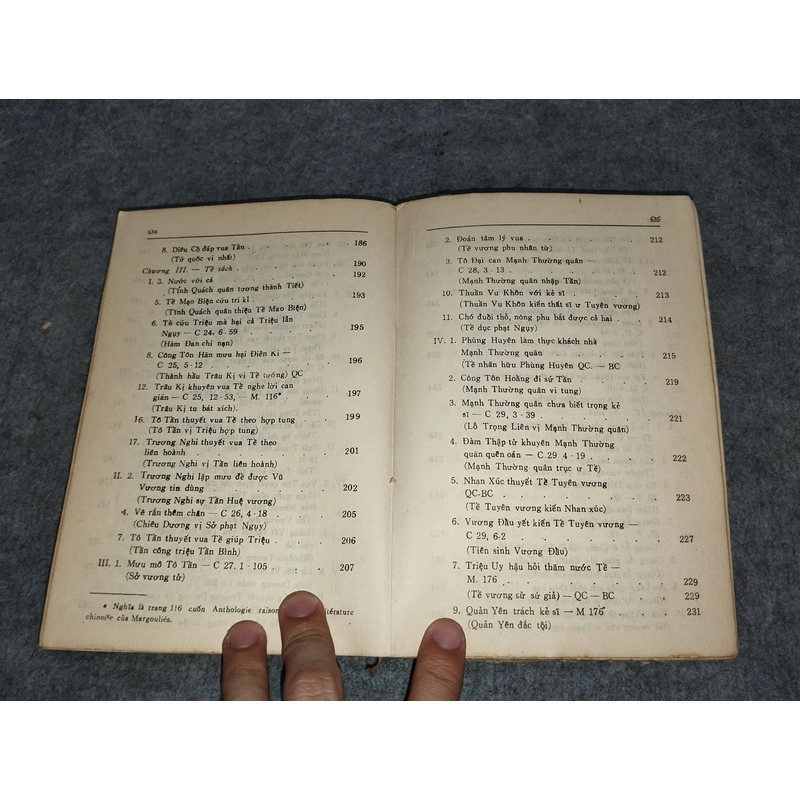 534
8. Diêu Cồ đáp vua Tần . . . . . . . 186
(Tứ quốc vi nhất)
Chương III. — Tề sách . . . . . . . 190
I. 3. Nước với cá . . . . . . . 192
(Tĩnh Quách quân tương thành Tiết)
5. Tề Mạo Biện cứu tri kỉ . . . . . 193
(Tĩnh Quách quân thiện Tề Mao Biện)
6. Tề cứu Triệu mà hại cả Triệu lẫn
Ngụy — C 24, 6-59 . . . . . . 195
(Hàm Đan chi nạn)
8. Công Tôn Hãn mưu hại Điền Kị —
C 25, 5-12 . . . . . . . 196
(Thành hầu Trâu Kị vi Tề tướng) QC
12. Trâu Kị khuyên vua Tề nghe lời can
gián — C 25, 12-53, — M. 116* . . 197
(Trâu Kị tu bát xích).
16. Tô Tần thuyết vua Tề theo hợp tung 199
(Tô Tần vị Triệu hợp tung)
17. Trương Nghi thuyết vua Tề theo
liên hoành . . . . . . . 201
(Trương Nghi vị Tần liên hoành)
II. 2. Trương Nghi lập mưu để được Vũ
Vương tin dùng . . . . . . 202
(Trương Nghi sự Tần Huệ vương)
4. Vẽ rắn thêm chân — C 26, 4-18 . . 205
(Chiêu Dương vị Sở phạt Ngụy)
7. Tô Tần thuyết vua Tề giúp Triệu . . 206
(Tần công triệu Tần Bình)
III. 1. Mưu mô Tô Tần — C 27, 1-105 . . 207
(Sở vương tử)
* Nghĩa là trang 116 cuốn Anthologie raison literature
chinoise của Margouliés.
535
2. Đoán tâm lý vua . . . . . . 212
(Tề vương phu nhân tử)
3. Tô Đại can Mạnh Thường quân —
C 28, 3-13 . . . . . . . 212
(Mạnh Thường quân nhập Tần)
10. Thuần Vu Khôn với kẻ sĩ . . . . 213
(Thuần Vu Khôn kiến thất sĩ ư Tuyên vương)
11. Chó đuổi thỏ, nông phu bắt được cả hai . 214
(Tề dục phạt Ngụy)
IV. 1. Phùng Huyên làm thực khách nhà
Mạnh Thường quân . . . . . 215
(Tề nhân hữu Phùng Huyên QC. — BC
2. Công Tôn Hoằng đi sứ Tần . . . . 219
(Mạnh Thường quân vi tung)
3. Mạnh Thường quân chưa biết trọng kẻ
sĩ — C 29, 3-39 . . . . . . 221
(Lỗ Trọng Liên vị Mạnh Thường quân)
4. Đàm Thập tử khuyên Mạnh Thường
quân quên oán — C 29 4-19 . . . 222
(Mạnh Thường quân trục ư Tề)
5. Nhan Xúc thuyết Tề Tuyên vương
QC-BC . . . . . . . 223
(Tề Tuyên vương kiến Nhan xúc)
6. Vương Đầu yết kiến Tề Tuyên vương —
C 29, 6-2 . . . . . . . 227
(Tiên sinh Vương Đầu)
7. Triệu Uy hậu hỏi thăm nước Tề —
M. 176 . . . . . . . 229
(Tề vương sử sứ giả) — QC — BC . . 229
9. Quản Yên trách kẻ sĩ — M 176* . . 231
(Quản Yên đắc tội)